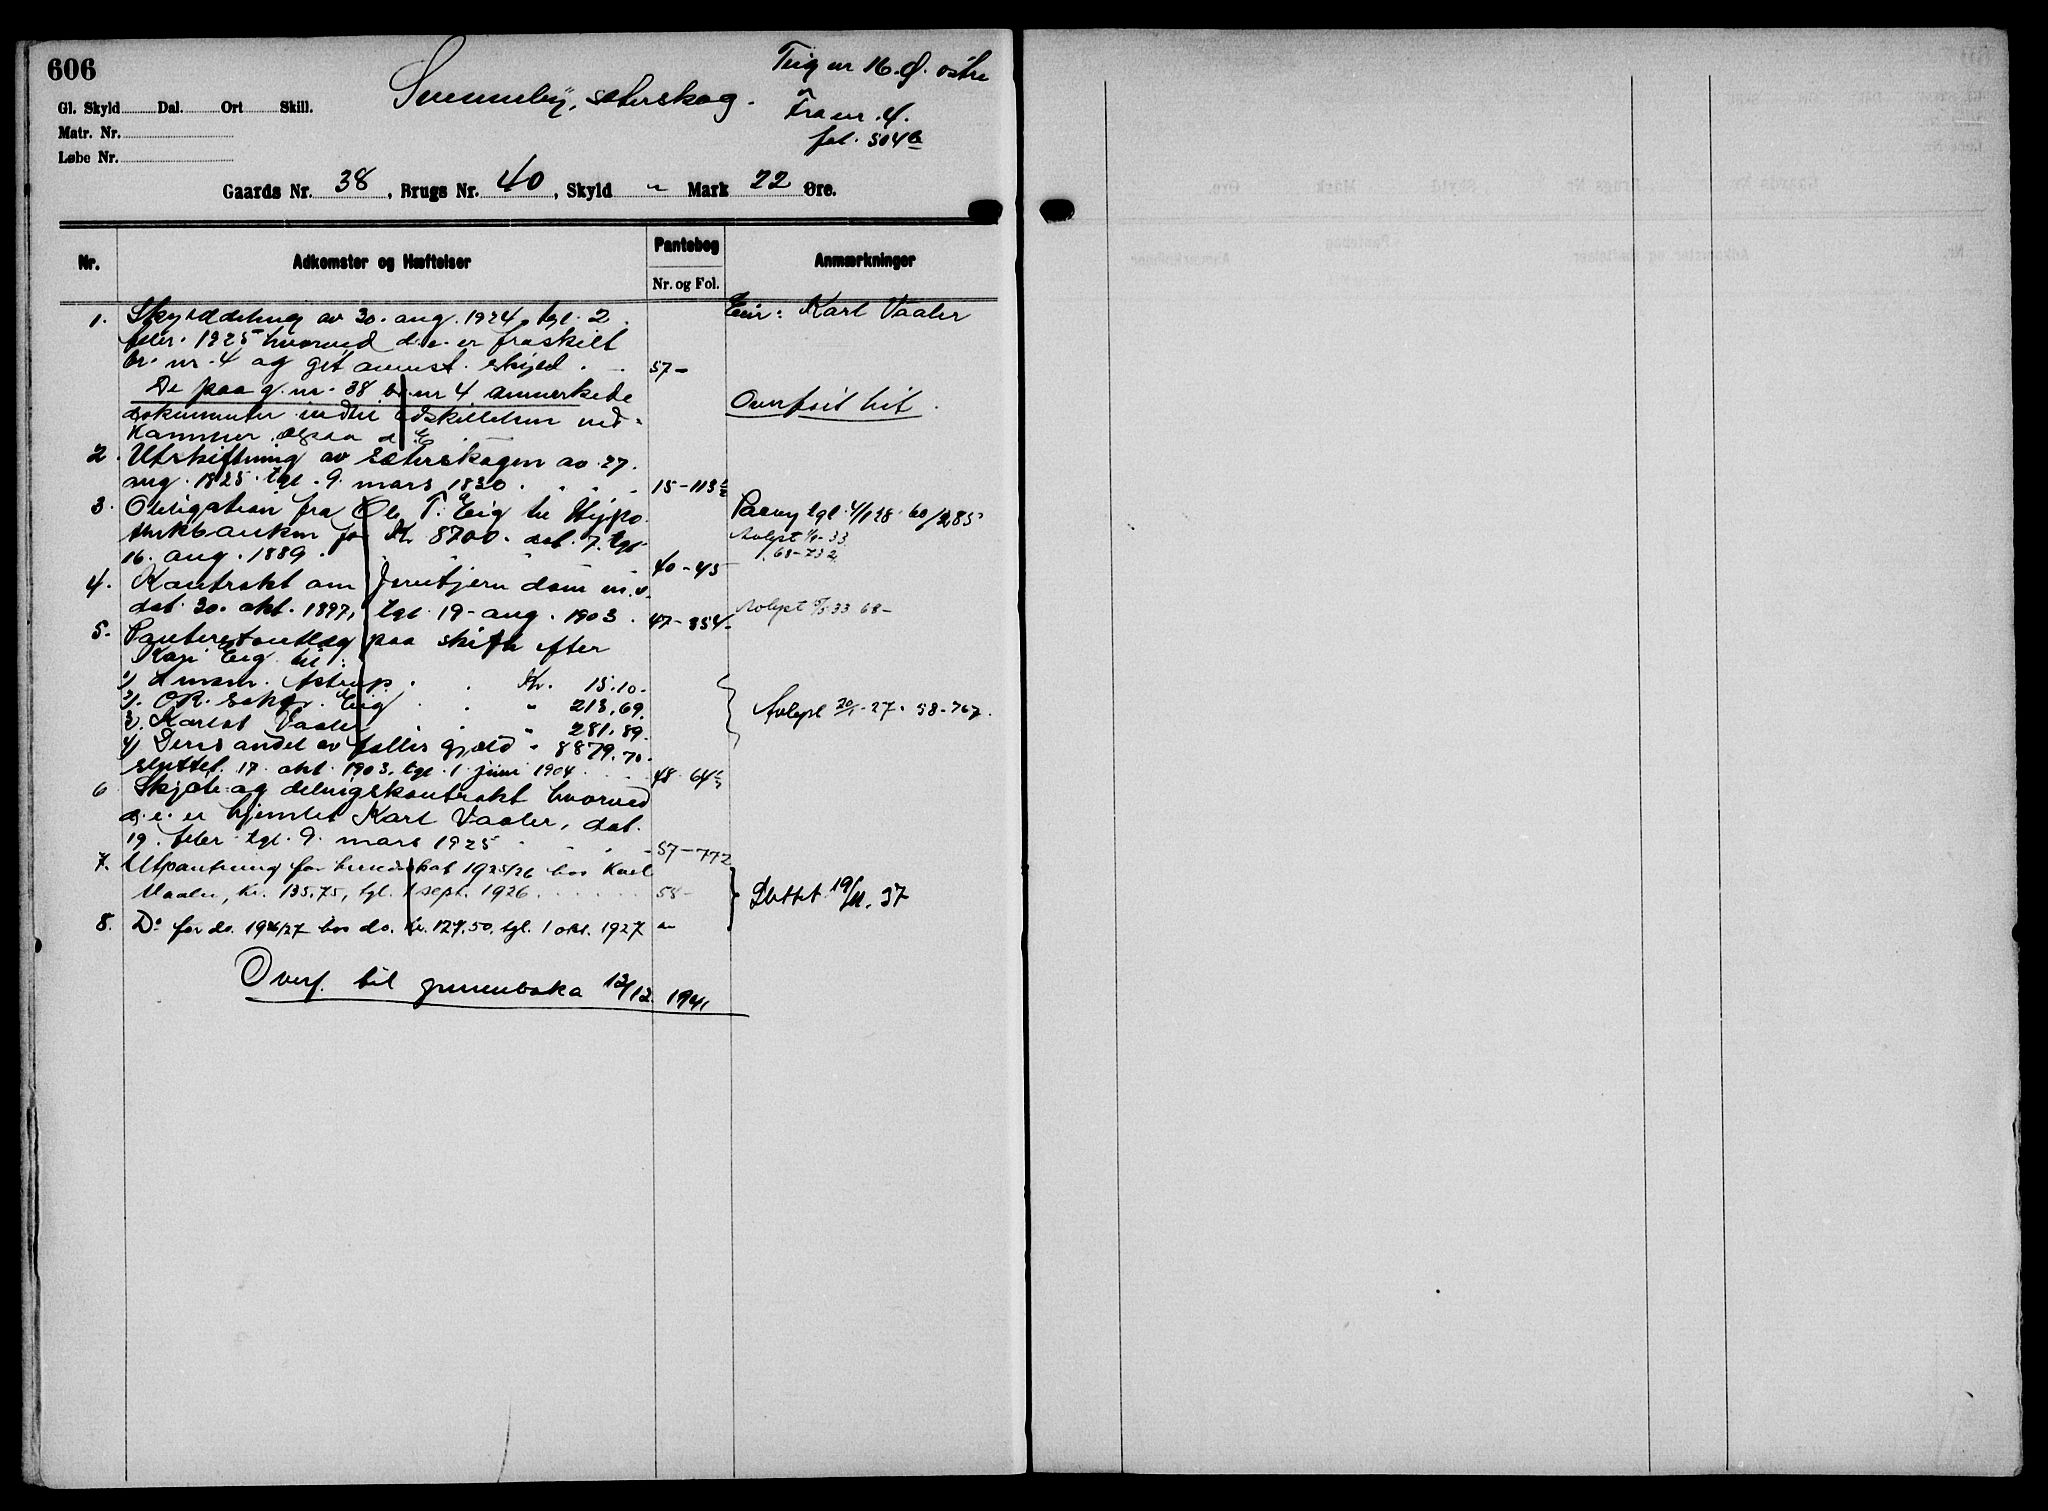 606
Teig nr 16. Ø. østre
Svenneby, sæterskog.
Fra nr. 4.
fol. 504b
Gl. Skyld Dal. Ort Skill.
Matr. Nr.
Løbe Nr.
Gaards Nr. 38, Brugs Nr. 40, Skyld " Mark 22 Øre.
Nr. Adkomster og Hæftelser Pantebog Nr. og Fol. Anmærkninger
1. Skylddeling av 30. aug. 1924, tgl. 2 Eier: Karl Vaaler
febr. 1925 hvorved d. e. er fraskilt
br. nr. 4 og git anmst. skyld. 57-
De paa g. nr. 38 br. nr. 4 anmerkede
dokumenter indtil adskillelsen ved- Overført hit.
kommer ogsaa d. e.
2. Utskiftning av sæterskogen av 27.
aug. 1825. tgl. 9. mars 1830. 15-113
3. Obligation fra Ole T. Eig til Hypo- Paateg tgl. 4/1 28 60/285
thekbanken for Kr 8700. dat. 7. tgl. Avlyst 33
16. aug. 1889. 40-45 68-732
4. Kontrakt om dam m. v.
dat. 30. okt. 1897, tgl. 19. aug. 1903. 47-854 Avlyst 33 68-
5. Panteretsutlæg paa skifte efter
Kari Eig til:
1) Astrup. Kr. 15.10.
2) O.R. sakf. Eig " 213.69.
3) Karl Vaaler " 281.89. Avlyst 20/1-27. 58-767.
4) Dens andel av fælles gjæld " 8879.70.
sluttet 17. okt. 1903, tgl. 1. juni 1904 48-64
6 Skjøte og delingskontrakt hvorved
d. e. er hjemlet Karl Vaaler, dat.
19. febr. tgl. 9. mars 1925 57-772
7. Utpantning for 1925/26 hos Karl
Vaaler, kr. 135,75, tgl. 1 sept. 1926 58- Slettet 19/11. 37
8. Do for do. 1926/27 hos do. kr. 127.50, tgl. 1 okt. 1927 "
Overf. til grunnboka 12/12 1941